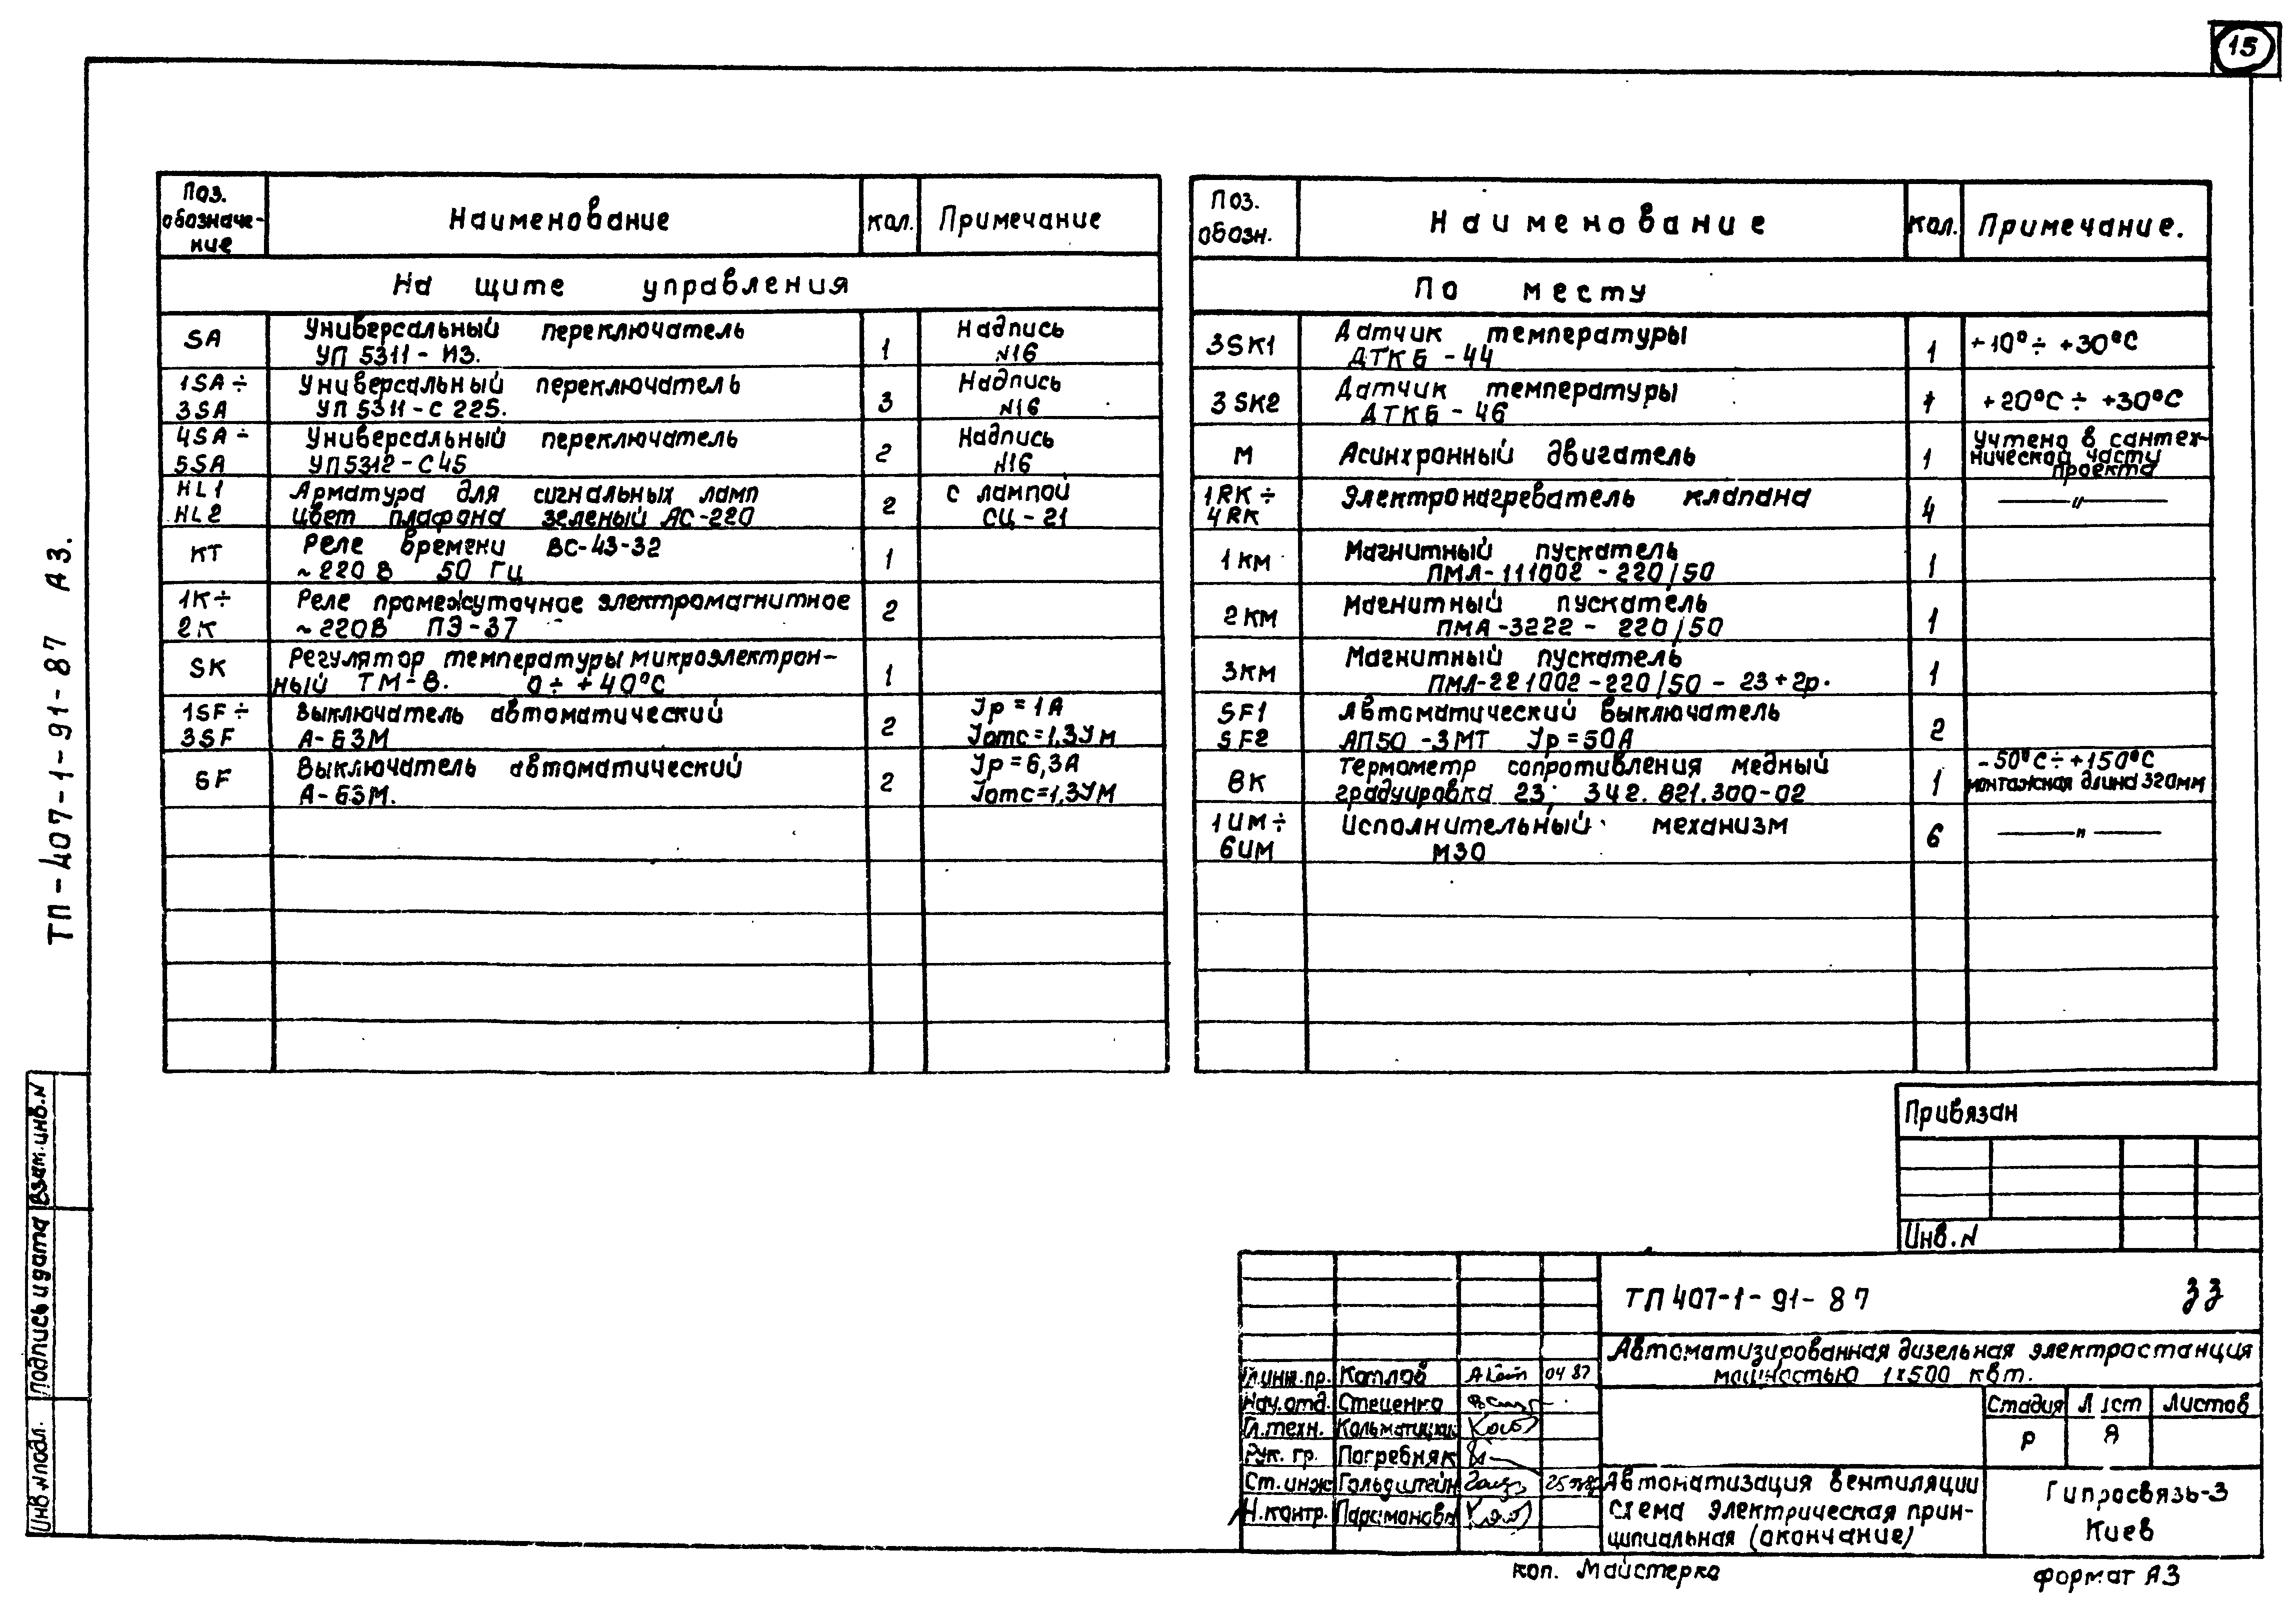 15
ТП-407-1-91-87 А3.
Поз. обозначе-ние
Наименование
кол.
Примечание
На щите управления
SA
Универсальный переключатель
УП 5311 - И3.
1
Надпись
N16
1SA ÷
3SA
Универсальный переключатель
УП 5311 - С 225.
3
Надпись
N16
4SA ÷
5SA
Универсальный переключатель
УП5312-С45
2
Надпись
N16
HL1
HL2
Арматура для сигнальных ламп
цвет плафона зеленый АС-220
2
с лампой
СЦ - 21
КТ
Реле времени ВС-43-32
~220 В 50 Гц
1
1К÷
2К
Реле промежуточное электромагнитное
~220В ПЭ-37
2
SK
Регулятор температуры микроэлектрон-
ный ТМ-8. 0 ÷ +40°С
1
1SF ÷
3SF
Выключатель автоматический
А-63М
2
Jр = 1А
Jотс=1,3Jм
SF
Выключатель автоматический
А-63М.
2
Jр = 6,3А
Jотс=1,3JМ
Поз.
обозн.
Наименование
кол.
Примечание.
По месту
3SK1
Датчик температуры
ДТКБ - 44
1
+10° ÷ +30°С
3SK2
Датчик температуры
ДТКБ - 46
1
+20°С ÷ +30°С
М
Асинхронный двигатель
1
Учтено в сантех-
нической части
проекта
1RK ÷
4RK
Электронагреватель клапана
4
—〃—
1КМ
Магнитный пускатель
ПМЛ-111002 - 220/50
1
2КМ
Магнитный пускатель
ПМА-3222 - 220/50
1
3КМ
Магнитный пускатель
ПМЛ-221002-220/50 - 23+2р.
1
SF1
SF2
Автоматический выключатель
АП50 -3МТ Jр=50А
2
ВК
Термометр сопротивления медный
градуировка 23; 342.821.300-02
1
-50°С ÷ +150°С
монтажная длина 320мм
1ИМ÷
6ИМ
Исполнительный механизм
МЭО
6
—〃—
Привязан
Инв.N
ТП 407-1-91-87
ЭЭ
Автоматизированная дизельная электростанция
мощностью 1х500 квт.
Гл.инж.пр. Котлов 04 87
Нач.отд. Стеценко
Гл.техн. Кольматицкий
Рук. гр. Погребняк
Ст.инж Гольдштейн
Н.контр. Парамонова
Стадия Лист Листов
Р 8
Автоматизация вентиляции
Схема электрическая прин-
ципиальная (окончание)
Гипросвязь-3
Киев
коп. Майстерко
формат А3
Взам.инв.N
Подпись и дата
Инв.Nподл.